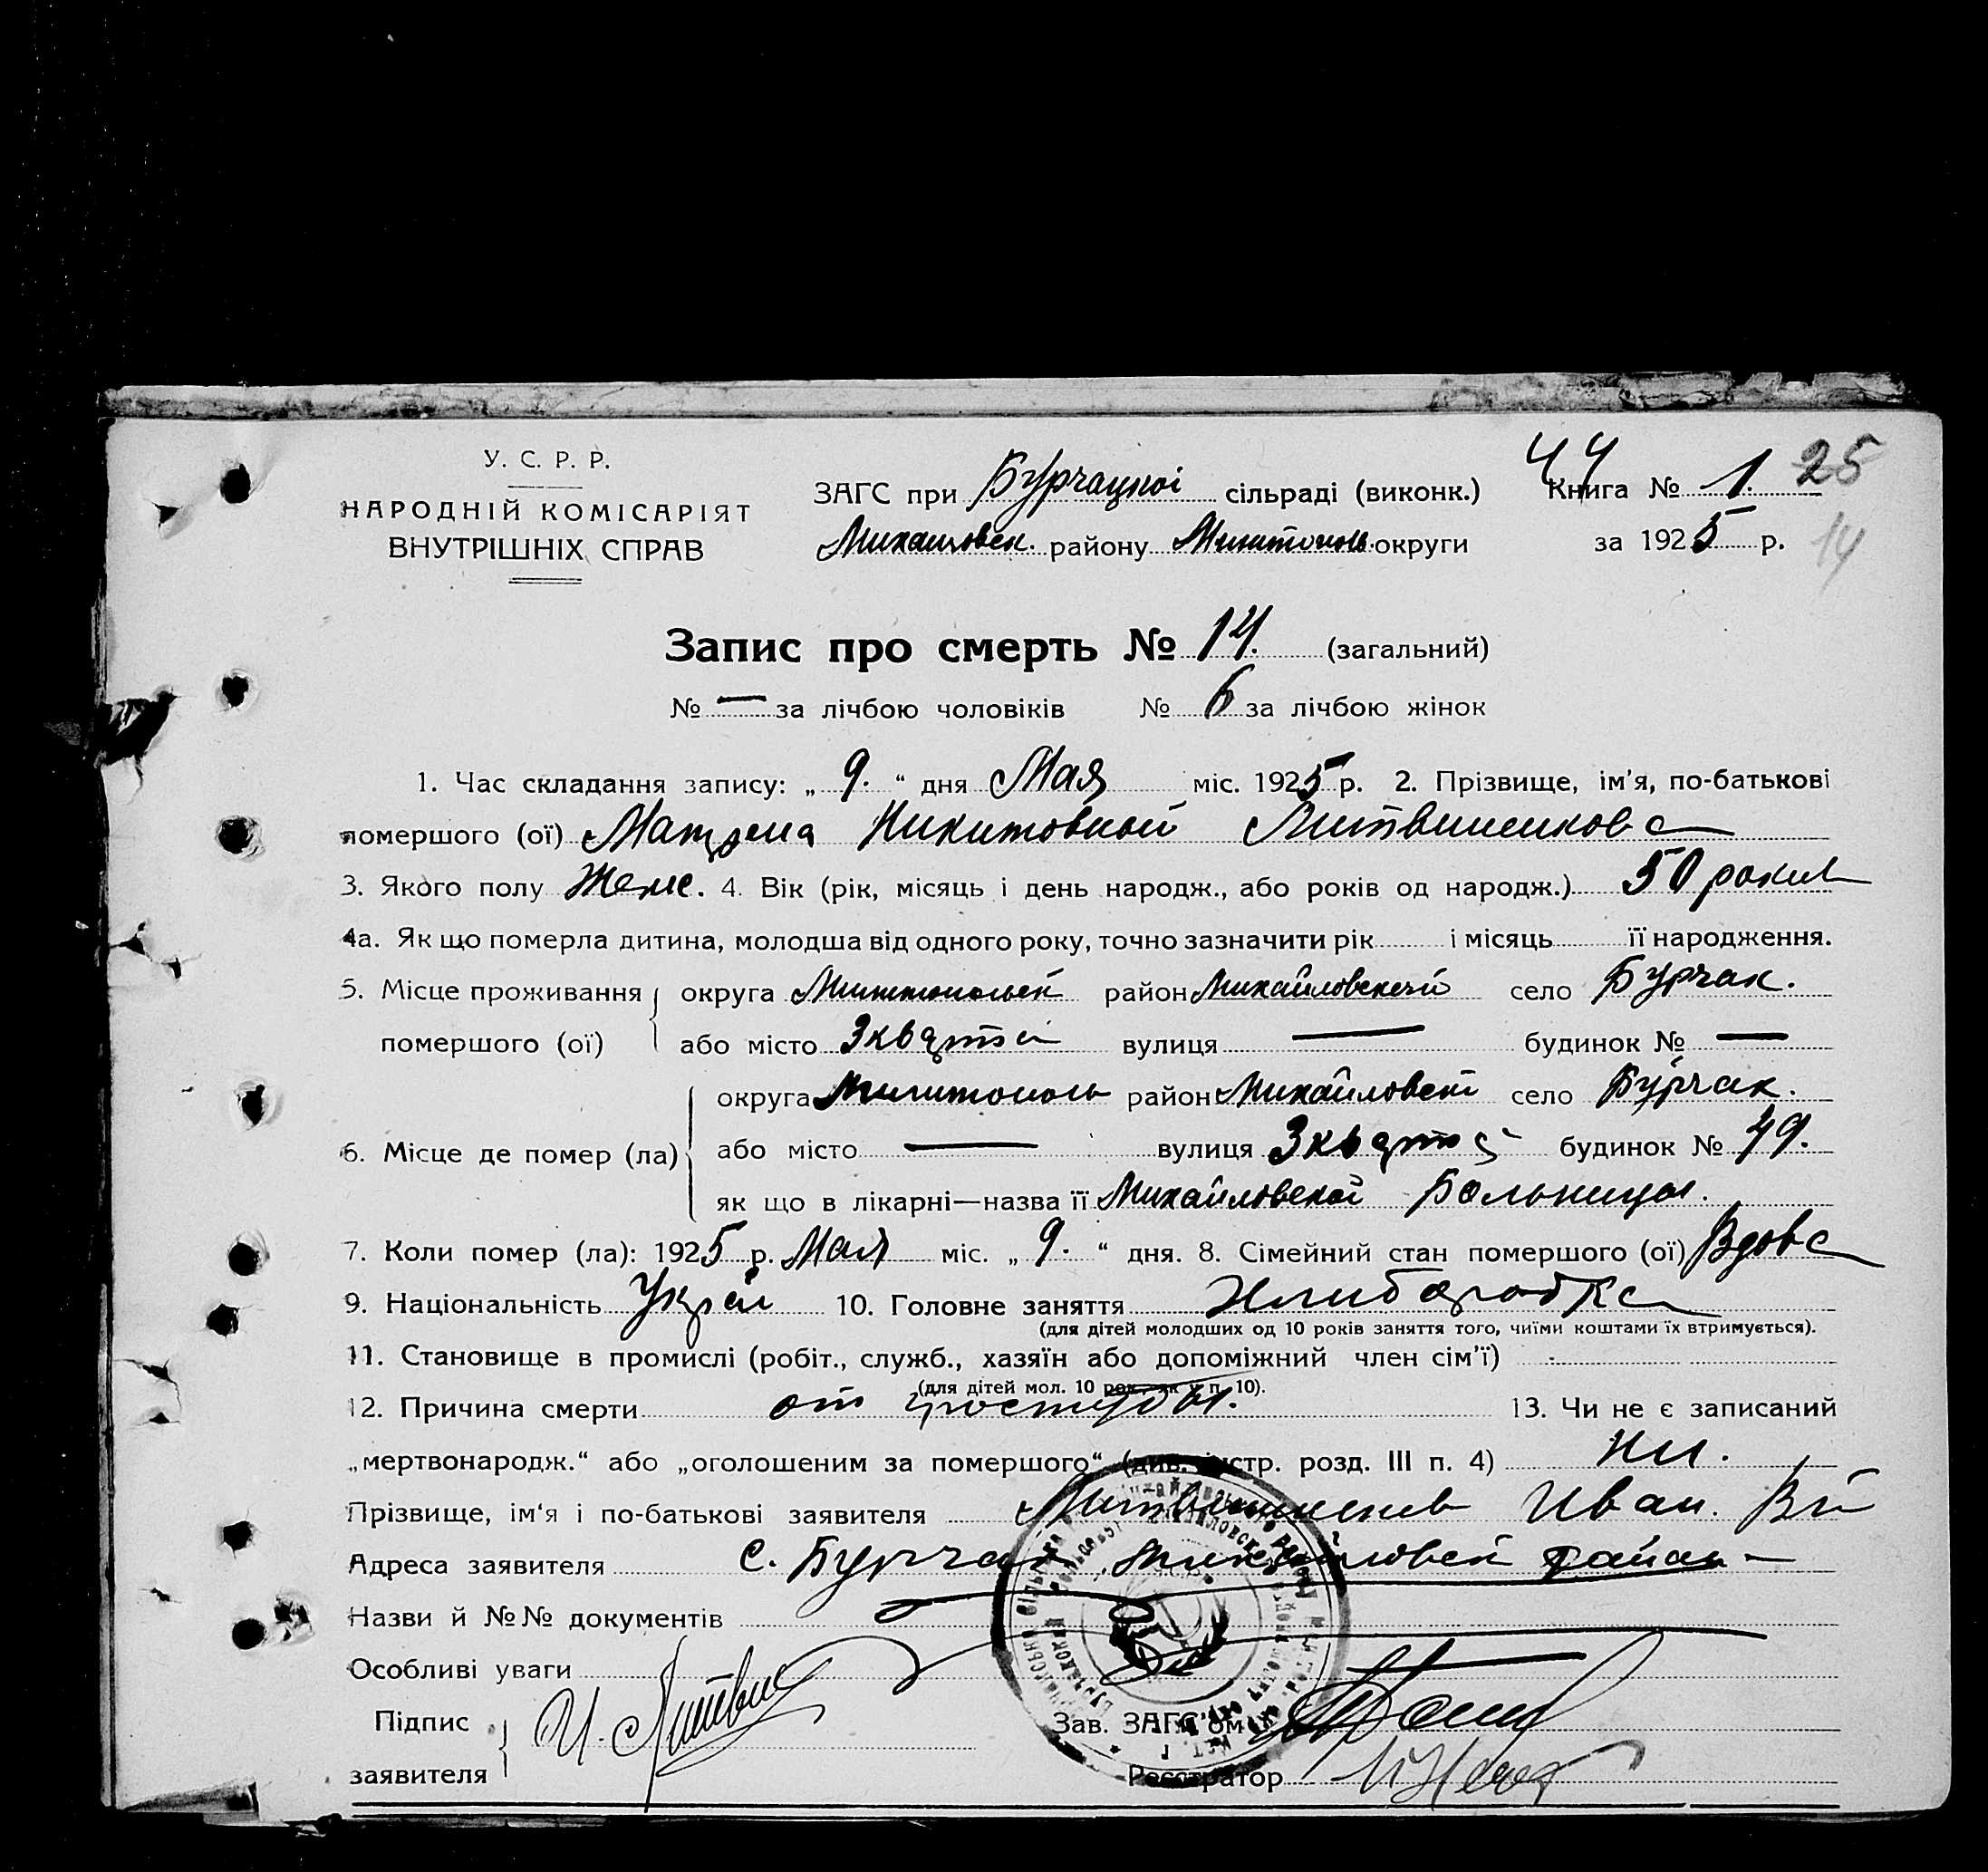 44 25
У. С. Р. Р.
НАРОДНІЙ КОМІСАРІЯТ
ВНУТРІШНІХ СПРАВ
ЗАГС при Бурчацкої сільраді (виконк.) Книга № 1.
Михайловск. району Мелитополь. округи за 1925 р. 14
Запис про смерть № 14. (загальний)
№ — за лічбою чоловіків № 6 за лічбою жінок
1. Час складання запису: „ 9. “ дня Мая міс. 1925 р. 2. Прізвище, ім'я, по-батькові
помершого (ої) Матрена Никитовной Литвиненкова
3. Якого полу Женс. 4. Вік (рік, місяць і день народж., або років од народж.) 50 роков
4а. Як що померла дитина, молодша від одного року, точно зазначити рік і місяць її народження.
5. Місце проживання округа Мелитопольск район Михайловский село Бурчак.
помершого (ої) або місто 3 кварта вулиця — будинок № —
округа Мелитополь район Михайловск село Бурчак.
6. Місце де помер (ла) або місто — вулиця 3 кварта будинок № 49.
як що в лікарні—назва її Михайловской Больницы.
7. Коли помер (ла): 1925 р. Мая міс. „ 9. “ дня. 8. Сімейний стан помершого (ої) Вдова
9. Національність Украї 10. Головне заняття Хлиборобка
(для дітей молодших од 10 років заняття того, чиїми коштами їх втримується).
11. Становище в промислі (робіт., служб., хазяїн або допоміжний член сім'ї)
(для дітей мол. 10 рок., як у п. 10).
12. Причина смерти от простуды. 13. Чи не є записаний
„мертвонародж.“ або „оголошеним за помершого“ (див. інстр. розд. III п. 4) Ни.
Прізвище, ім'я і по-батькові заявителя Литвиненков Иван.
Адреса заявителя с. Бурчак, Михайловск района
Назви й №№ документів
Особливі уваги
Підпис Зав. ЗАГС'ом
заявителя И. Литвин
Реєстратор